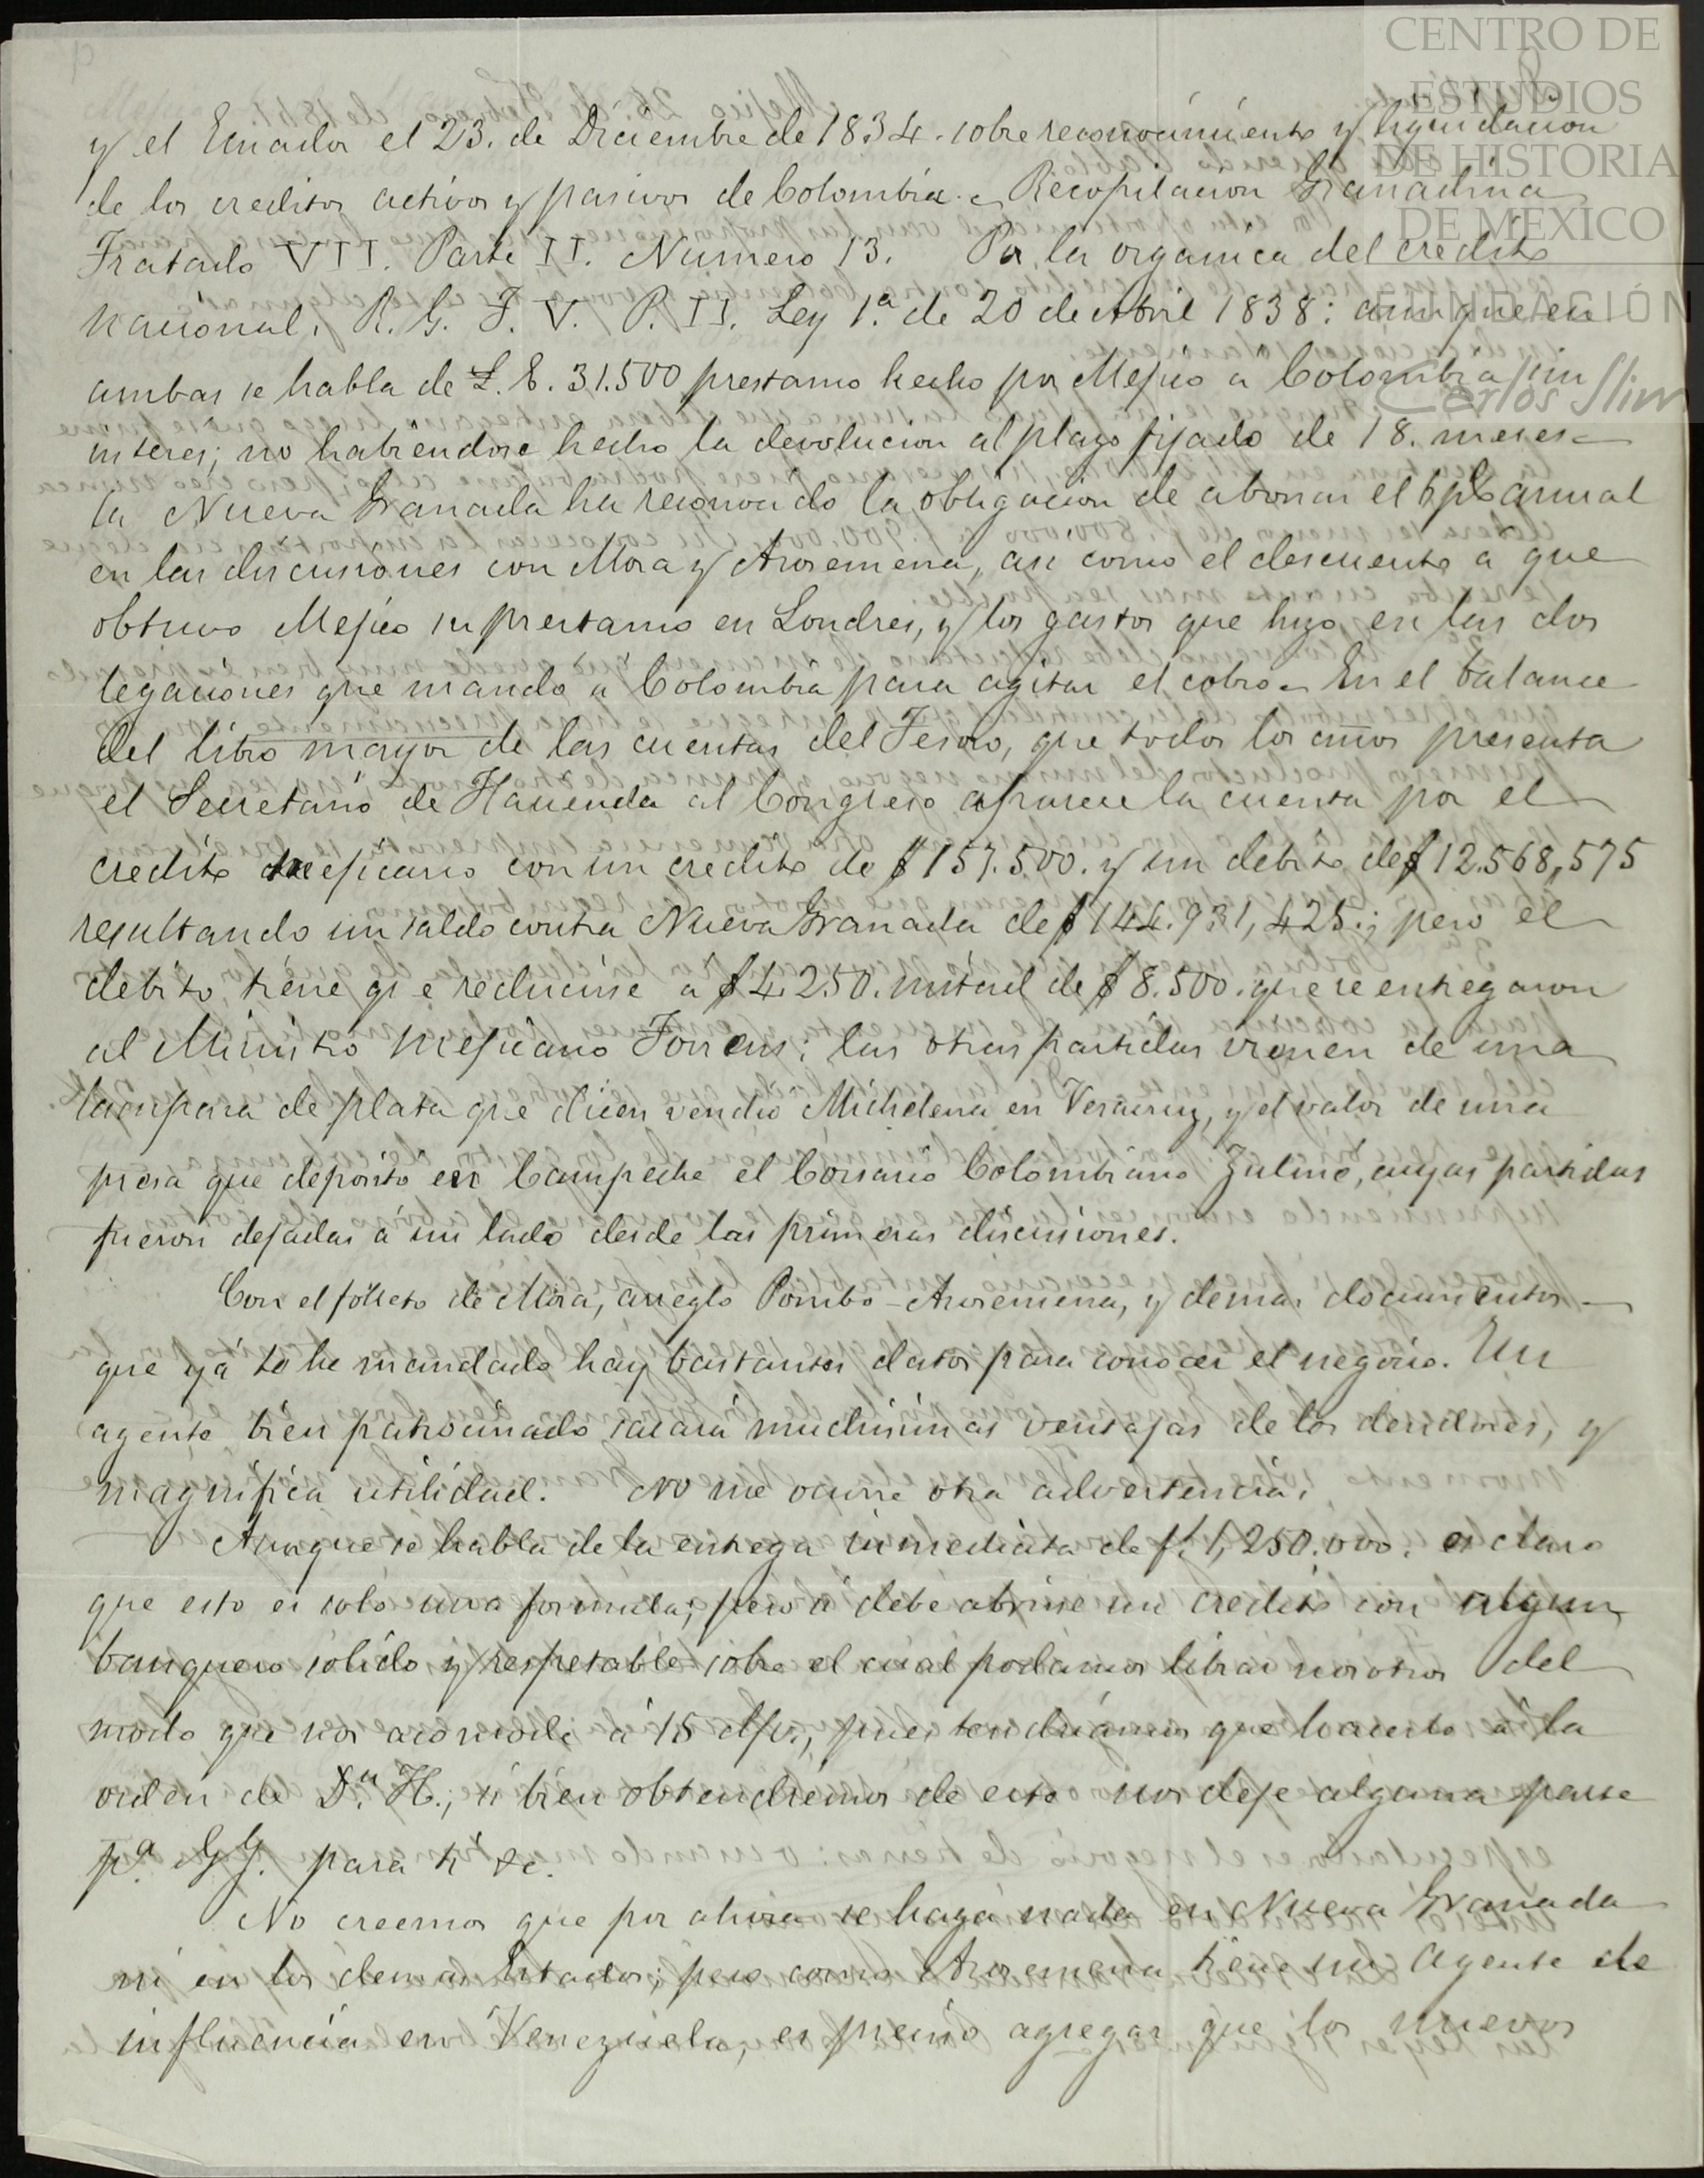 CENTRO DE
ESTUDIOS
DE HISTORIA
DE MEXICO
FUNDACIÓN
Carlos Slim
y el Ecuador el 23. de Diciembre de 1834. sobre reconocimiento y liquidacion
de los creditos activos y pasivos de Colombia. Recopilacion Granadina
Tratado VII. Parte II. Numero 13. Por la organica del credito
nacional, R. G. T. V. P. II. Ley 1.ª de 20 de Abril 1838: aunque en
ambas se habla de £. E. 31.500 prestamo hecho por Mejico a Colombia sin
interes; no habiendose hecho la devolucion al plazo fijado de 18. meses
la Nueva Granada ha reconocido la obligacion de abonar el 6 p% anual
en las discusiones con Mora y Arosemena, asi como el descuento a que
obtuvo Mejico su prestamo en Londres, y los gastos que hizo en las dos
legaciones que mando a Colombia para agitar el cobro. En el balance
del libro mayor de las cuentas del Tesoro, que todos los años presenta
el Secretario de Hacienda al Congreso aparece la cuenta por el
credito mejicano con un credito de $ 157.500. y un debito de $ 12.568,575
resultando un saldo contra Nueva Granada de $ 144.931,425.; pero el
debito tiene q.e reducirse a $ 4.250. mitad de $ 8.500. que se entregaron
al Ministro Mejicano Torrens; las otras partidas vienen de una
lampara de plata que dicen vendio Michelena en Veracruz, y el valor de una
presa que deposito en Campeche el Corsario Colombiano Zulmé, cuyas partidas
fueron dejadas á un lado desde las primeras discusiones.
Con el folleto de Mora, arreglo Pombo-Arosemena, y demas documentos
que yá te he mandado hay bastantes datos para conocer el negocio. Un
agente bien patrocinado sacará muchisimas ventajas de los deudores, y
magnifica utilidad. No me ocurre otra advertencia.
Aunque se habla de la entrega inmediata de f. 1,250.000. es claro
que esto es solo una formula; pero si debe abrirse un credito con algun
banquero solido y respetable sobre el cual podamos librar nosotros del
modo que nos acomode á 15 d/v., pues tendriamos que hacerlo á la
orden de D.n H.; si bien obtendremos de este nos deje alguna parte
p.a G. G. para ti &c.
No creemos que por ahora se haga nada en Nueva Granada
ni en los demas Estados; pero como Arosemena tiene un agente de
influencia en Venezuela, es preciso agregar que los nuevos